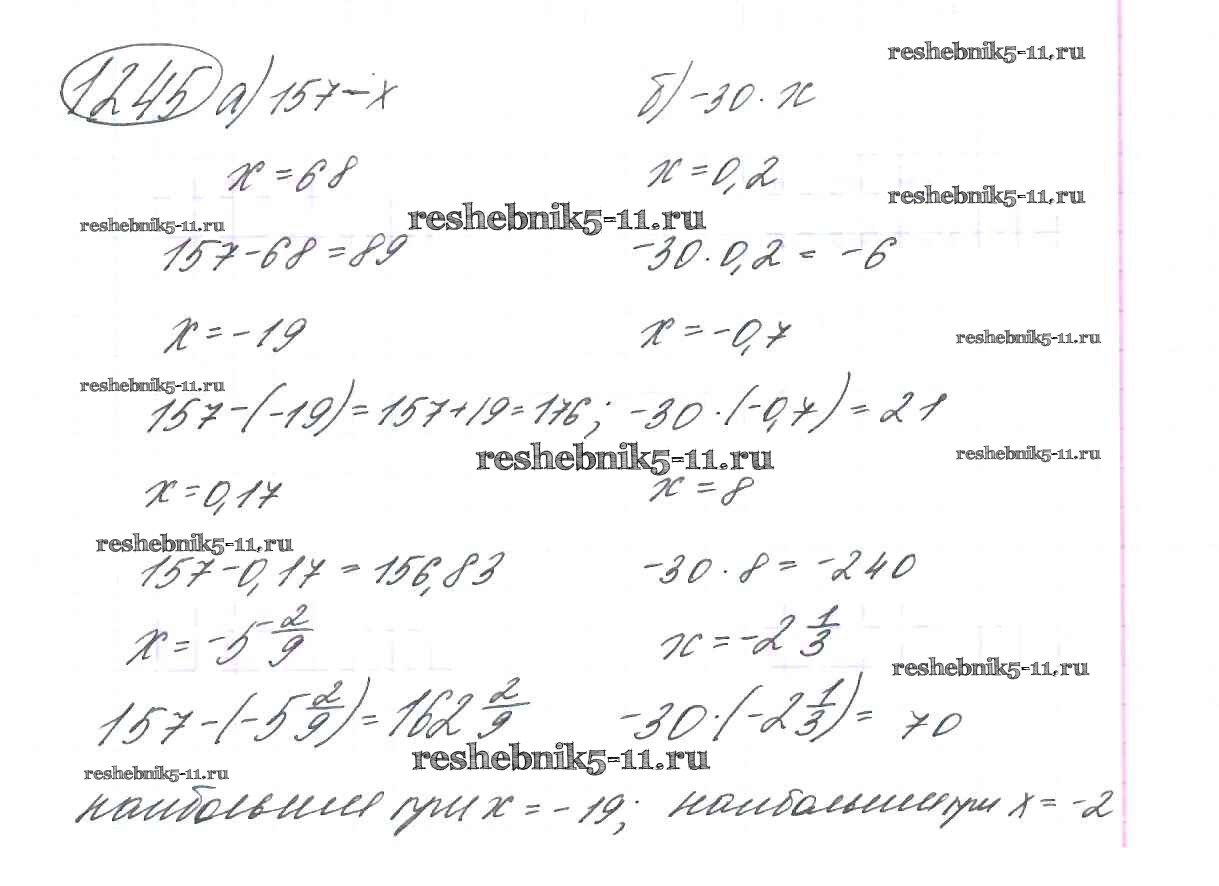 reshebnik5-11.ru
1245 а) 157 - x б) -30 · x
x = 68 x = 0,2
reshebnik5-11.ru
reshebnik5-11.ru reshebnik5-11.ru
157 - 68 = 89 -30 · 0,2 = -6
x = -19 x = -0,7
reshebnik5-11.ru
reshebnik5-11.ru
157 - (-19) = 157 + 19 = 176; -30 · (-0,7) = 21
reshebnik5-11.ru reshebnik5-11.ru
x = 0,17 x = 8
reshebnik5-11.ru
157 - 0,17 = 156,83 -30 · 8 = -240
x = -5 2/9 x = -2 1/3
reshebnik5-11.ru
157 - (-5 2/9) = 162 2/9 -30 · (-2 1/3) = 70
reshebnik5-11.ru
reshebnik5-11.ru
наибольшии при x = -19; наибольшии при x = -2